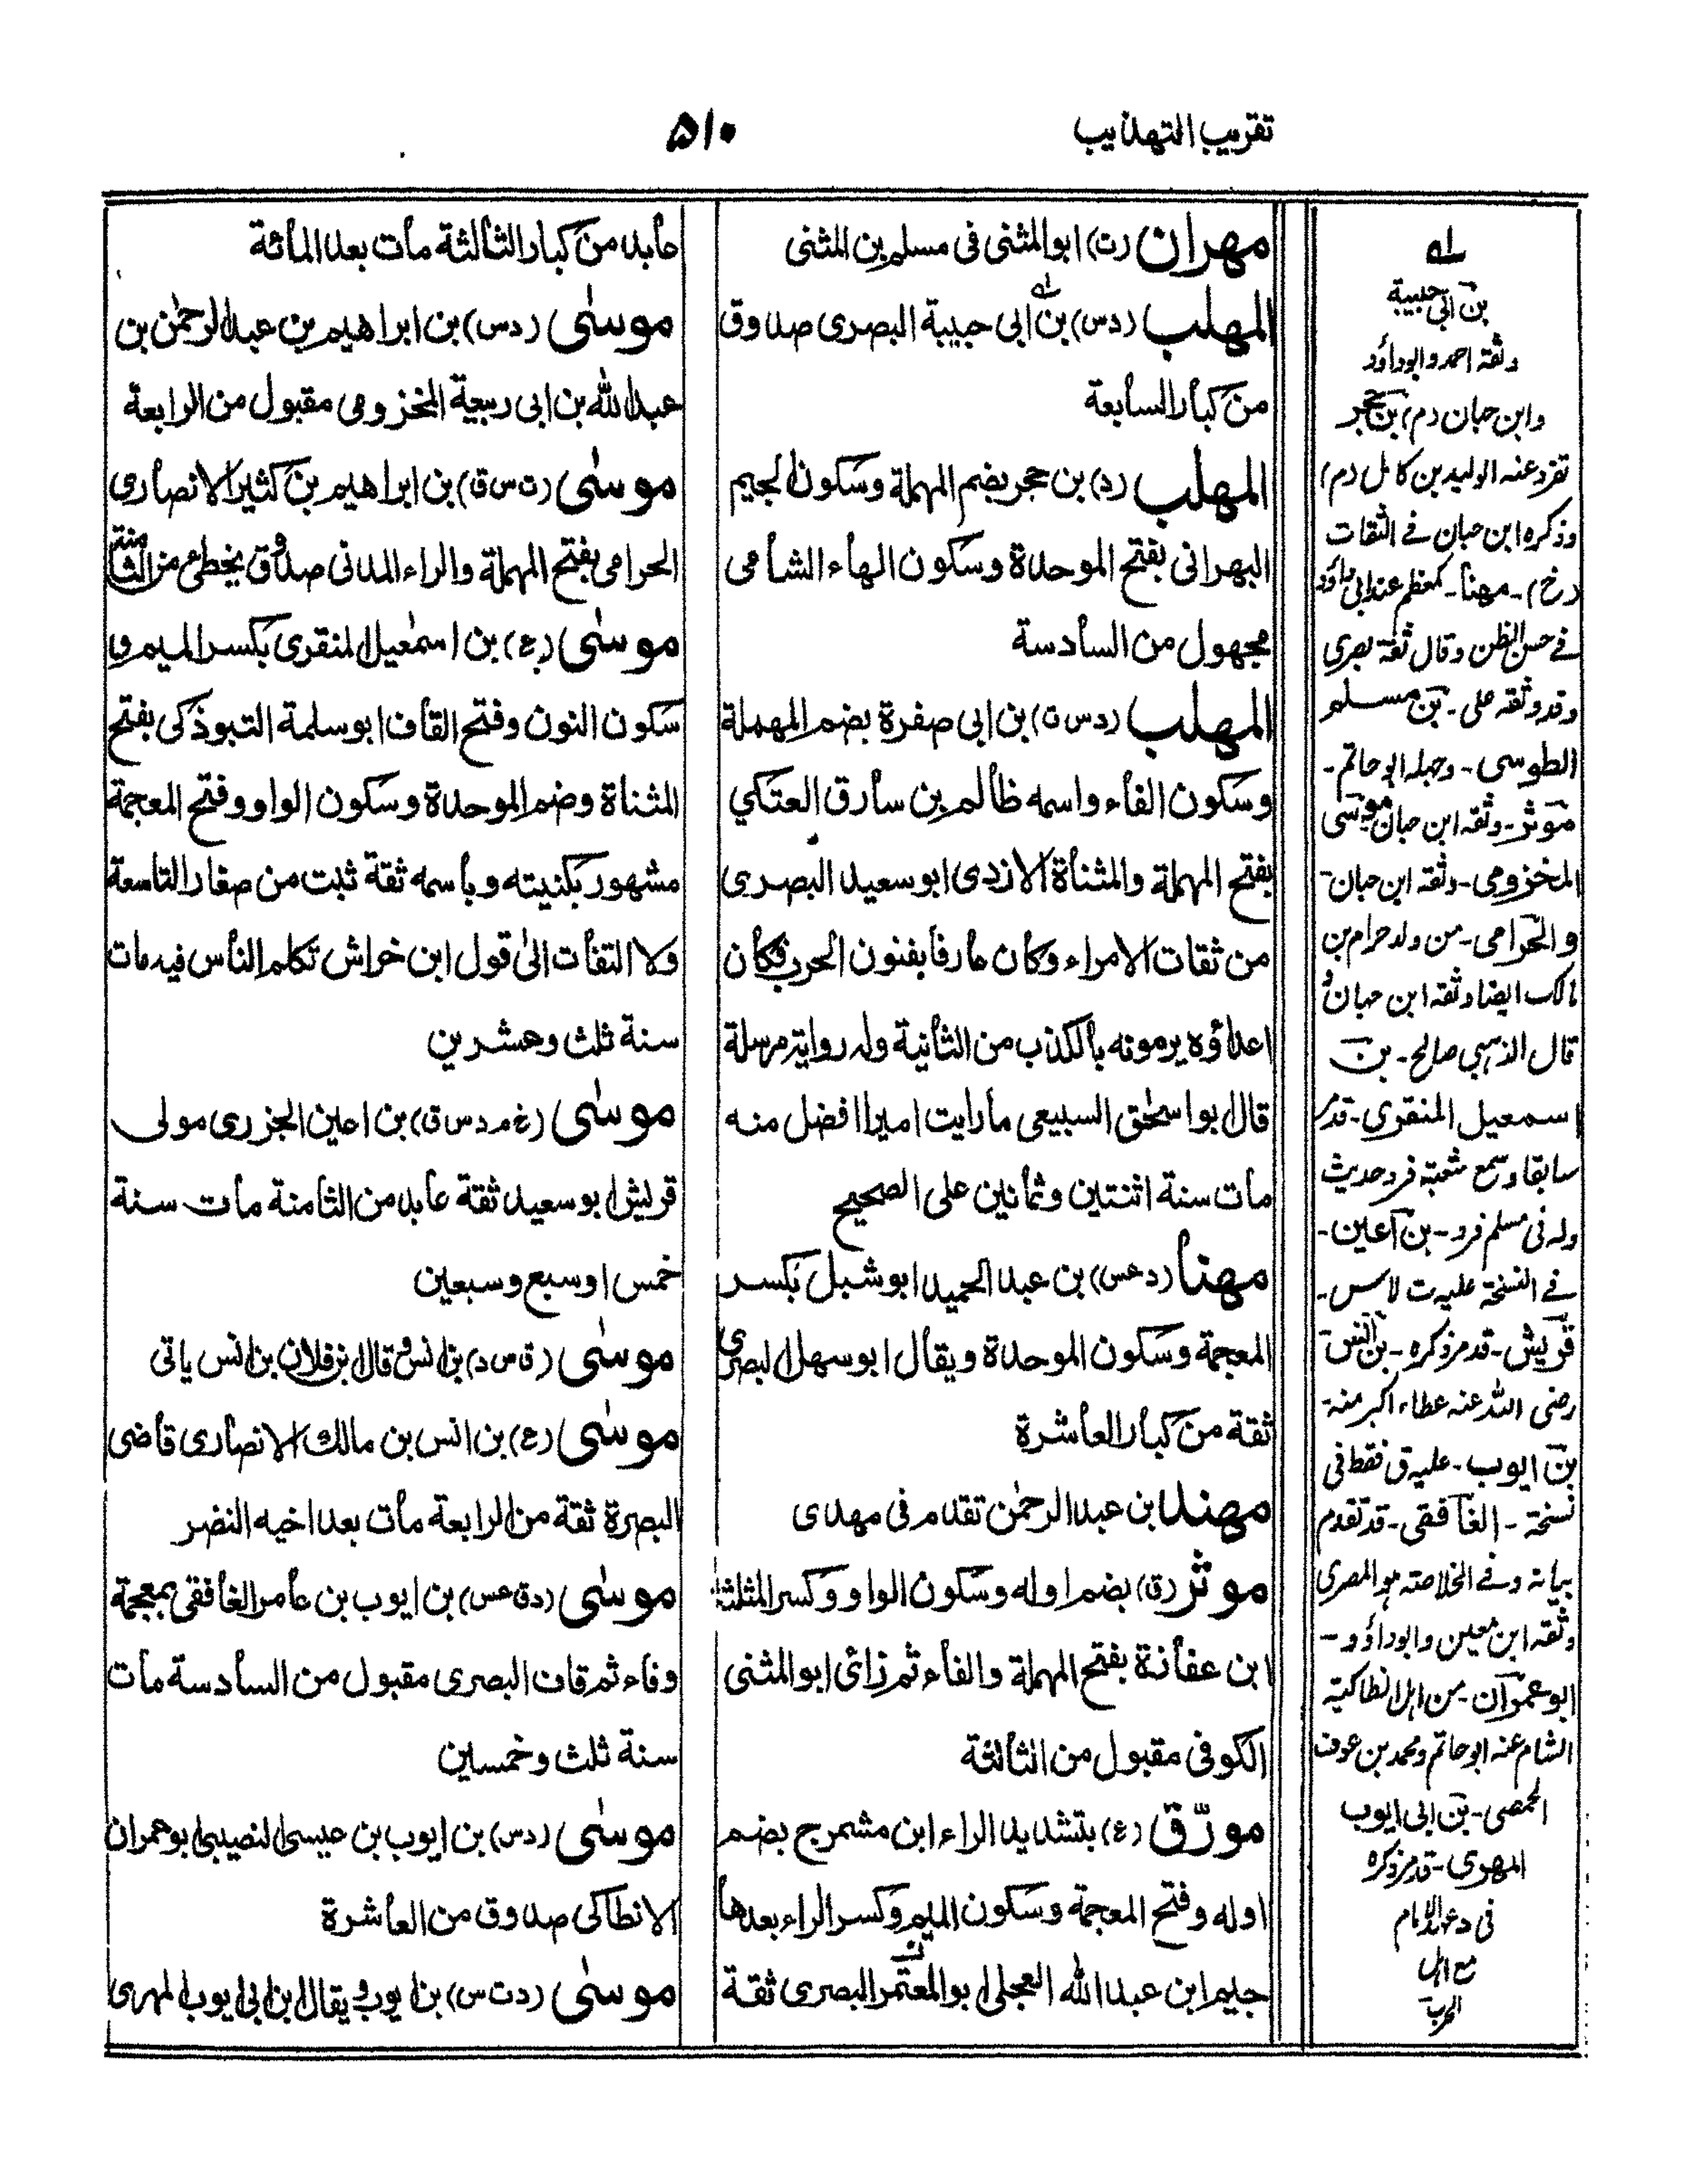 تقريب التهذيب
۵۱۰
مهران (ت) ابوالمثنى فى مسلم بن المثنى
المهلب (دس) بن ابى حبيبة البصرى صدوق
من كبار السابعة
المهلب (د) بن حجر بضم المهملة وسكون الجيم
البهرانى بفتح الموحدة وسكون الهاء الشامى
مجهول من السادسة
المهلب (دس ت) بن ابى صفرة بضم المهملة
وسكون الفاء واسمه ظالم بن سارق العتكي
بفتح المهملة والمثناة الازدى ابو سعيد البصرى
من ثقات الامراء وكان عارفا بفنون الحرب فكان
اعداؤه يرمونه بالكذب من الثانية وله رواية مرسلة
قال ابو اسحٰق السبيعى ما رايت اميرا افضل منه
مات سنة اثنتين وثمانين على الصحيح
مهنا (دعس) بن عبد الحميد ابو شبل بكسر
المعجمة وسكون الموحدة ويقال ابو سهل البصرى
ثقة من كبار العاشرة
مهند بن عبد الرحمٰن تقدم فى مهدى
موثر (ق) بضم اوله وسكون الواو وكسر المثلثة
ابن عفازة بفتح المهملة والفاء ثم زائى ابو المثنى
الكوفى مقبول من الثالثة
مورّق (ع) بتشديد الراء ابن مشمرج بضم
اوله وفتح المعجمة وسكون الميم وكسر الراء بعدها
جيم ابن عبد الله العجلى ابو المعتمر البصرى ثقة
عابد من كبار الثالثة مات بعد المائة
موسٰى (دس) بن ابراهيم بن عبد الرحمٰن بن
عبد الله بن ابى ربيعة المخزومى مقبول من الرابعة
موسٰى (ت س ق) بن ابراهيم بن كثير الانصارى
الحرامى بفتح المهملة والراء المدنى صدوق يخطئ من الثامنة
موسٰى (ع) بن اسمٰعيل المنقرى بكسر الميم و
سكون النون وفتح القاف ابو سلمة التبوذكى بفتح
المثناة وضم الموحدة وسكون الواو وفتح المعجمة
مشهور بكنيته وباسمه ثقة ثبت من صغار التاسعة
ولا التفات الى قول ابن خراش تكلم الناس فيه مات
سنة ثلث وعشرين
موسٰى (خ م د س ق) بن اعين الجزرى مولى
قريش ابو سعيد ثقة عابد من الثامنة مات سنة
خمس او سبع وسبعين
موسٰى (ق س د) بن انس وقال ابن فلان بن انس ياتى
موسٰى (ع) بن انس بن مالك الانصارى قاضى
البصرة ثقة من الرابعة مات بعد اخيه النضر
موسٰى (دق عس) بن ايوب بن عامر الغافقى بمعجمة
وفاء ثم قاف البصرى مقبول من السادسة مات
سنة ثلث وخمسين
موسٰى (دس) بن ايوب بن عيسى النصيبى ابو عمران
الانطاكى صدوق من العاشرة
موسٰى (دت س) بن ايوب ويقال ابن ابى ايوب المهرى
له
بن ابى حبيبة
وثقه احمد وابوداؤد
وابن حبان (م) بن حجر
تفرد عنه الوليد بن كامل (م)
وذكره ابن حبان فے الثقات
(خ) - مهنا - كمعظم عند ابى داؤد
فے حسن الظن وقال ثقة بصرى
وقد وثقه على - بن مسلم
الطوسى - وجهله ابو حاتم -
موثر - وثقه ابن حبان موسى
المخزومى - وثقه ابن حبان -
والحرامى - من ولد حرام بن
مالك ايضا وثقه ابن حبان و
قال الذهبى صالح - بن
اسمعيل المنقرى - قدم
سابقا وسمع شعبة فرد حديث
وله فى مسلم فرد - بن اعين -
فے النسخة عليه ت لا س -
قريش - قد مر ذكره - بن انس
رضى الله عنه عطاء اكبر منه -
بن ايوب - عليه ق فقط فى
نسخة - الغافقى - قد تقدم
بيانه وفے الخلاصة هو المصرى
وثقه ابن معين وابوداؤد -
ابو عمران - من اهل انطاكية
الشام عنه ابو حاتم ومحمد بن عوف
الحمصى - بن ابى ايوب
المهرى - قد مر ذكره
مع اهل
الحرب